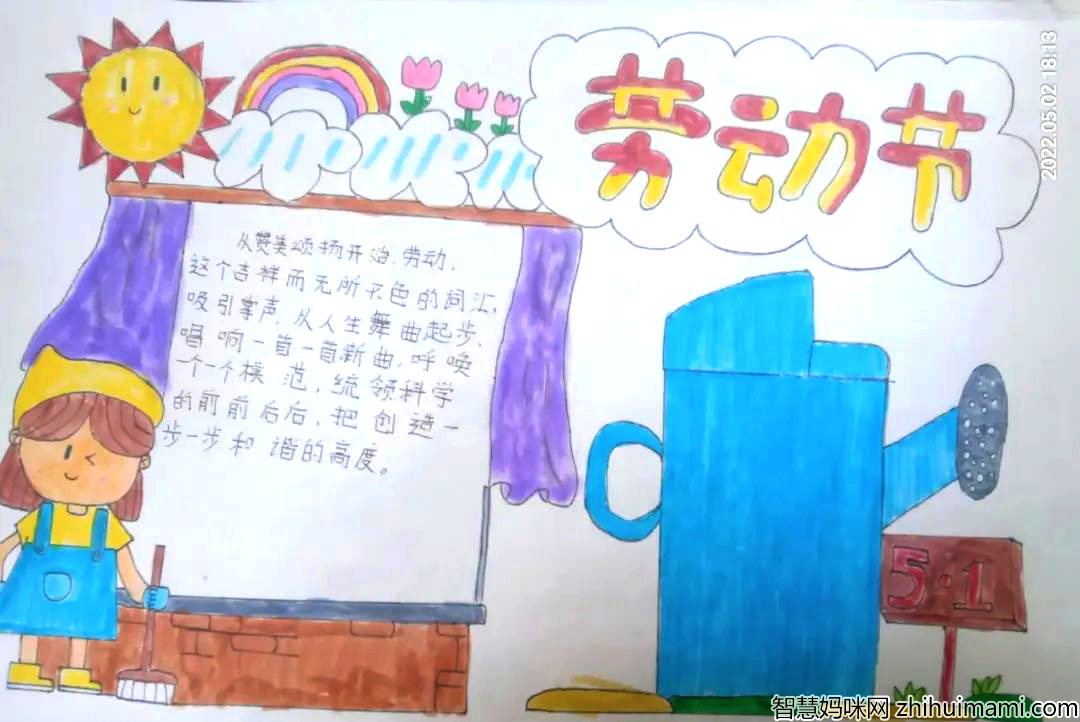 劳动节
2022.05.02 18:13
从赞美颂扬开始.劳动,
这个吉祥而无所不色的词汇,
吸引掌声,从人生舞曲起步,
唱响一首一首新曲,呼唤
一个一个模范,统领科学
的前前后后,把创造一
步一步和谐的高度。
5·1
智慧妈咪网 zhihuimami.com